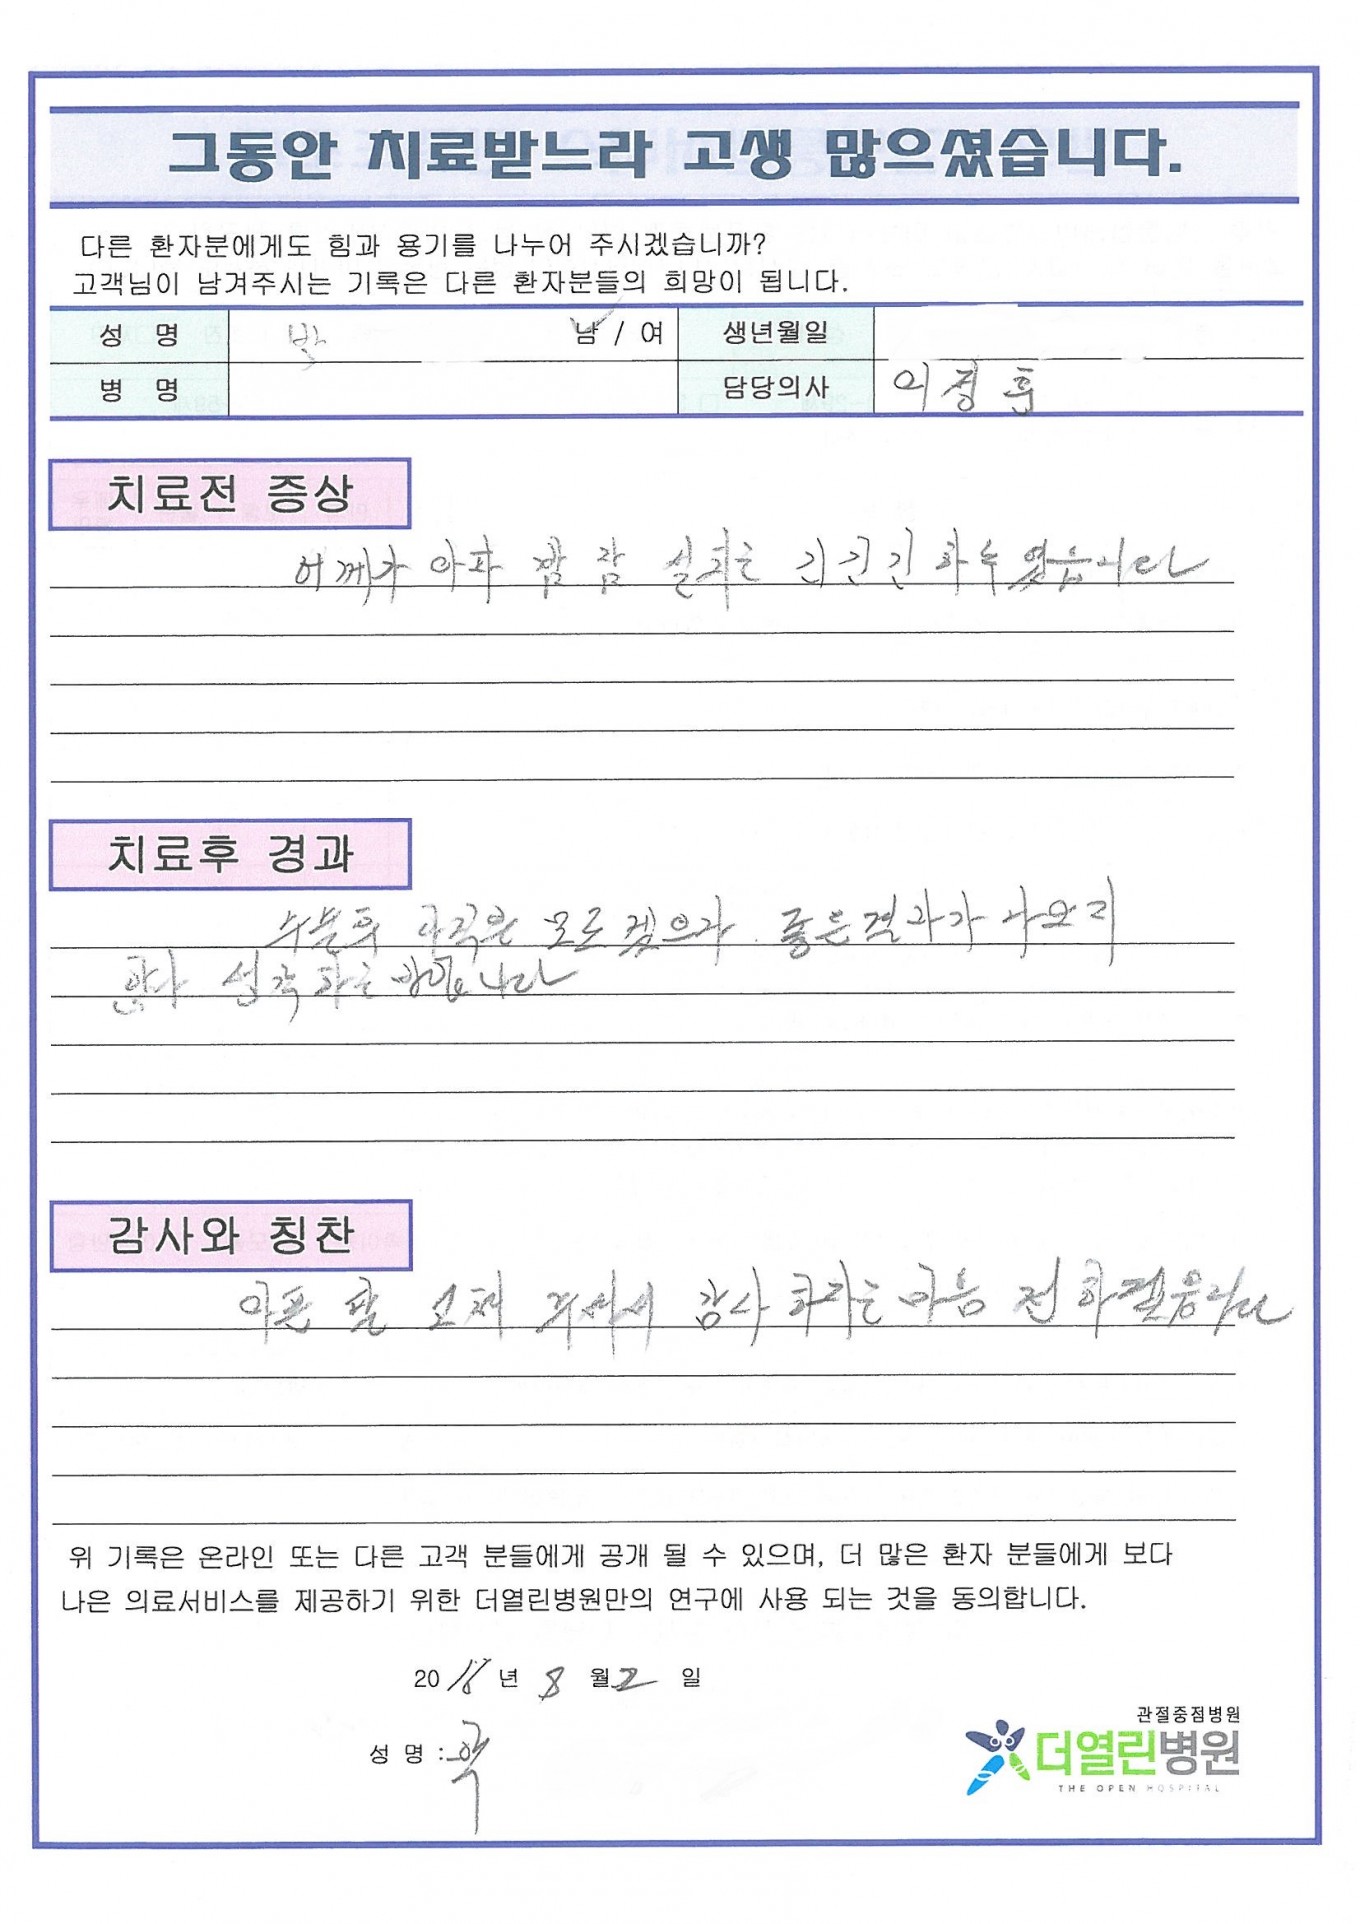 그동안 치료받느라 고생 많으셨습니다.
다른 환자분에게도 힘과 용기를 나누어 주시겠습니까?
고객님이 남겨주시는 기록은 다른 환자분들의 희망이 됩니다.
성 명 박 남 / 여 생년월일
병 명 담당의사 이정훈
치료전 증상
어깨가 아파 잠 설치는 긴긴 하루 였습니다
치료후 경과
수술후 아직은 모르겠으나 좋은결과가 나오지
않나 생각하는 바입니다
감사와 칭찬
아픈 팔 고쳐 주셔서 감사 하다는 마음 전하겠습니다
위 기록은 온라인 또는 다른 고객 분들에게 공개 될 수 있으며, 더 많은 환자 분들에게 보다
나은 의료서비스를 제공하기 위한 더열린병원만의 연구에 사용 되는 것을 동의합니다.
2018 년 8 월 2 일
성 명 :
관절중점병원
더열린병원
THE OPEN HOSPITAL